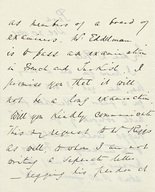 as members of a board of
examiners. Mr Eddlman
is to pass an examination
in French and Turkish. I
promise you that it will
not be a long examination
Will you kindly communicate
this my request to Mr Riggs
as well to whom I am not
writing a separate letter
begging his pardon at